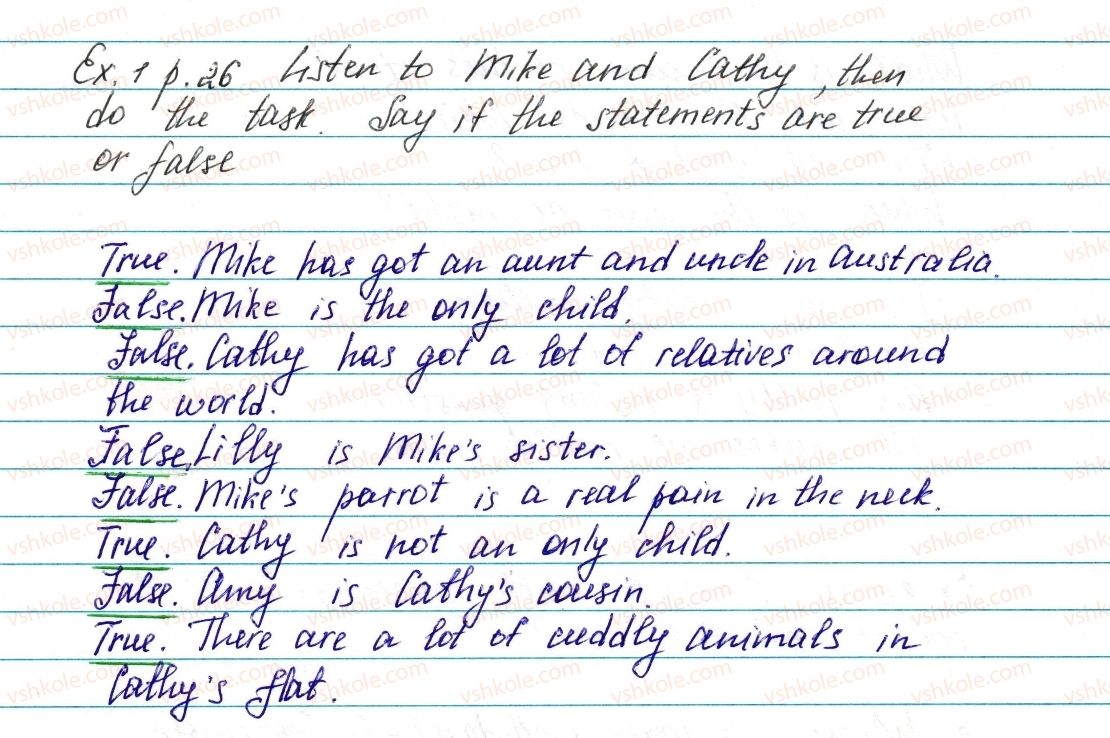 Ex. 1 p. 26 Listen to Mike and Cathy, then
do the task. Say if the statements are true
or false
True. Mike has got an aunt and uncle in Australia.
False. Mike is the only child.
False. Cathy has got a lot of relatives around
the world.
False. Lilly is Mike's sister.
False. Mike's parrot is a real pain in the neck.
True. Cathy is not an only child.
False. Amy is Cathy's cousin.
True. There are a lot of cuddly animals in
Cathy's flat.